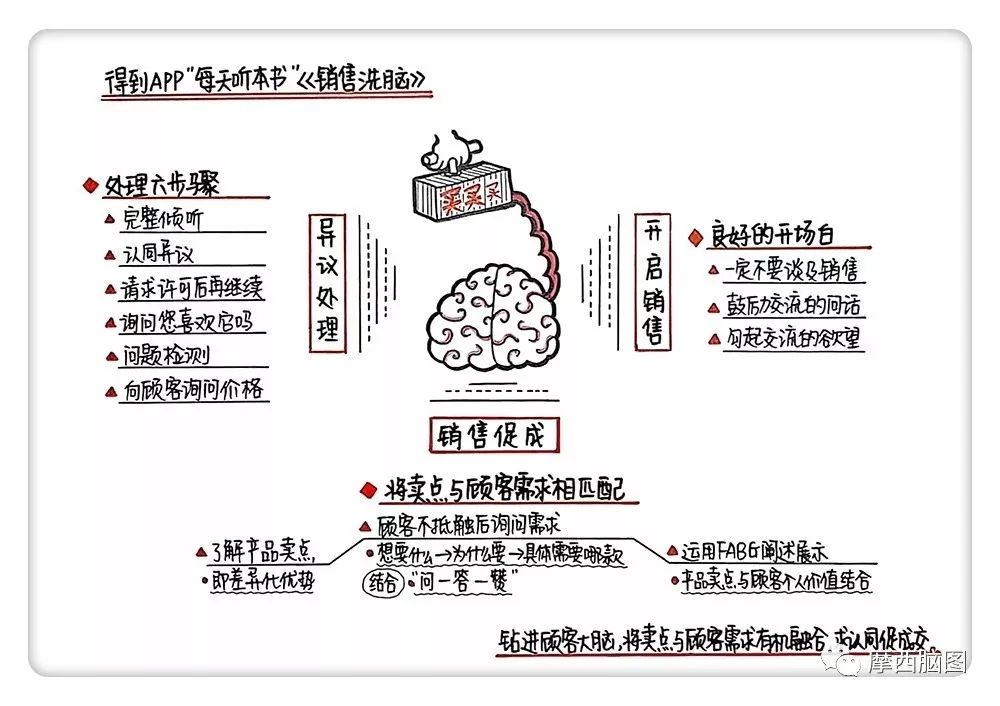 得到APP"每天听本书"《销售洗脑》
买买买
处理六步骤
完整倾听
认同异议
请求许可后再继续
询问您喜欢它吗
问题检测
向顾客询问价格
异议处理
开启销售
良好的开场白
一定不要谈及销售
鼓励交流的问话
勾起交流的欲望
销售促成
将卖点与顾客需求相匹配
了解产品卖点,
即差异化优势
顾客不抵触后询问需求
想要什么→为什么要→具体需要哪款
结合"问一答一赞"
运用FABG阐述展示
产品卖点与顾客个人价值结合
钻进顾客大脑,将卖点与顾客需求有机融合,求认同促成交。
摩西脑图